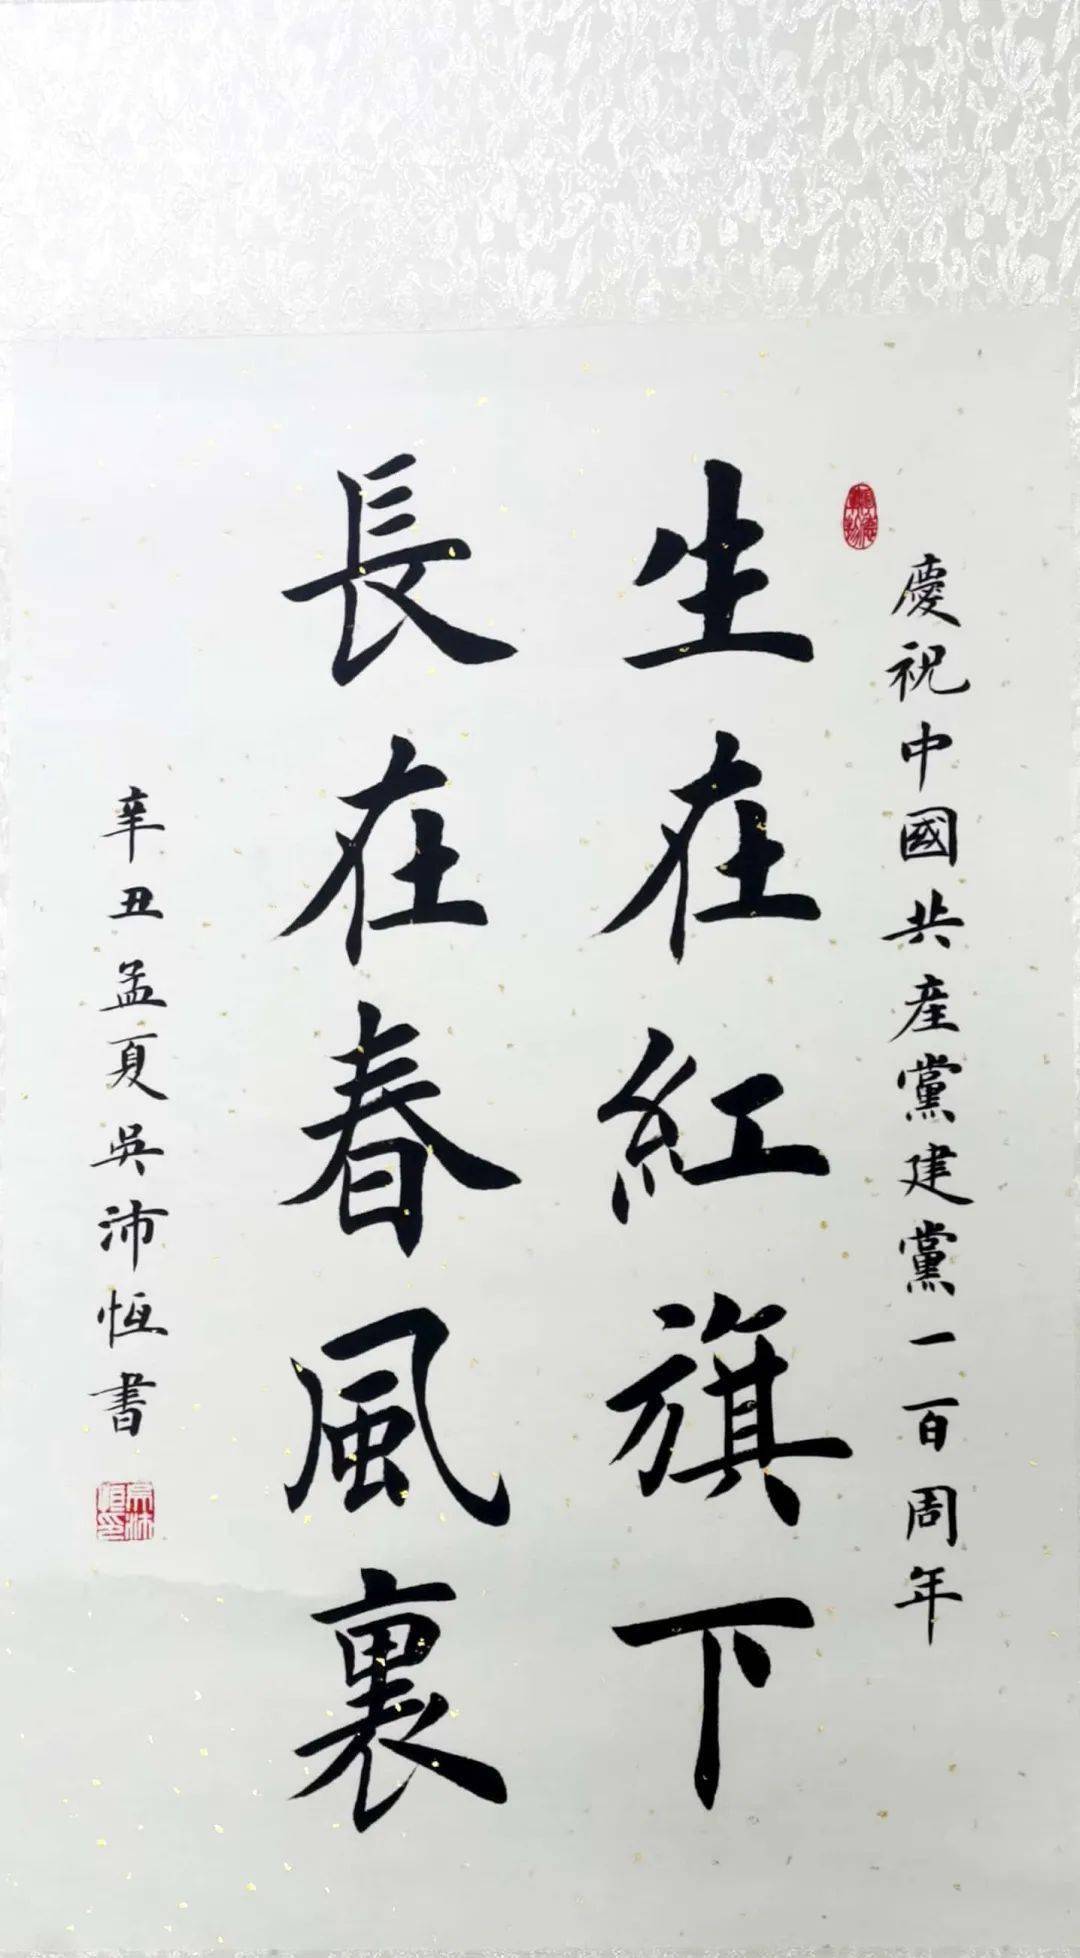 慶祝中國共產黨建黨一百周年
生在紅旗下
長在春風裏
辛丑孟夏吳沛恆書
吳沛恆印